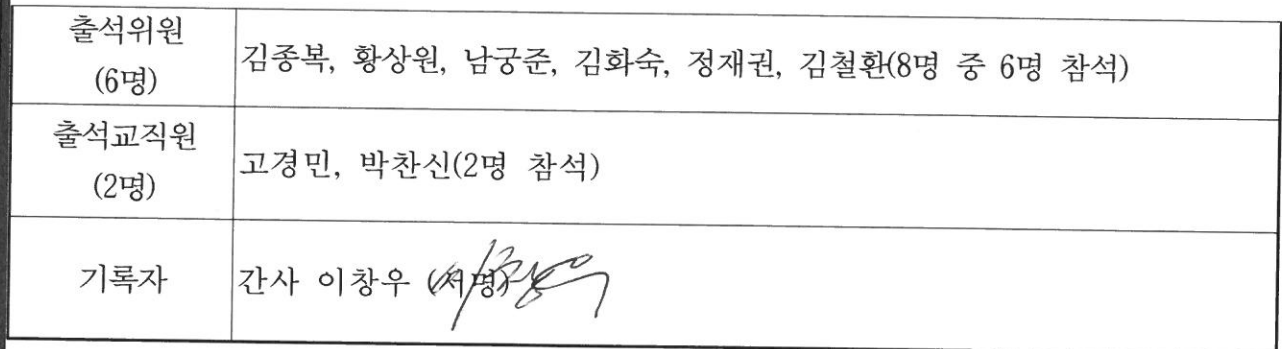 출석위원
(6명)
김종복, 황상원, 남궁준, 김화숙, 정재권, 김철환(8명 중 6명 참석)
출석교직원
(2명)
고경민, 박찬신(2명 참석)
기록자
간사 이창우 (서명)